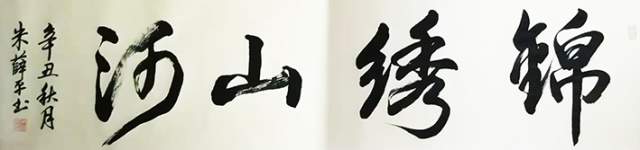 锦绣山河
辛丑秋月
朱薛平书